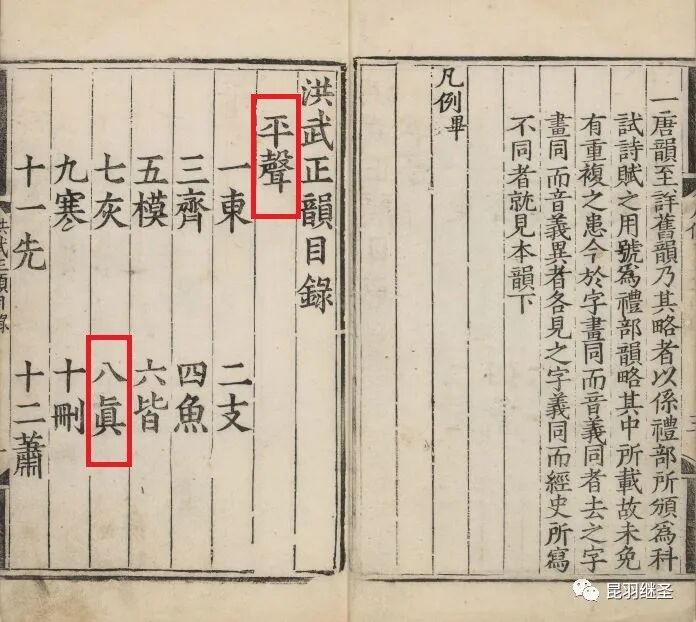 一唐韻至詳舊韻乃其略者以係禮部所頒爲科
試詩賦之用號爲禮部韻略其中所載故未免
有重複之患今於字畫同而音義同者去之字
畫同而音義異者各見之字義同而經史所寫
不同者就見本韻下
凡例畢
洪武正韻目錄
平聲
一東 二支
三齊 四魚
五模 六皆
七灰 八眞
九寒 十刪
十一先 十二蕭
洪武正韻目錄
昆羽继圣